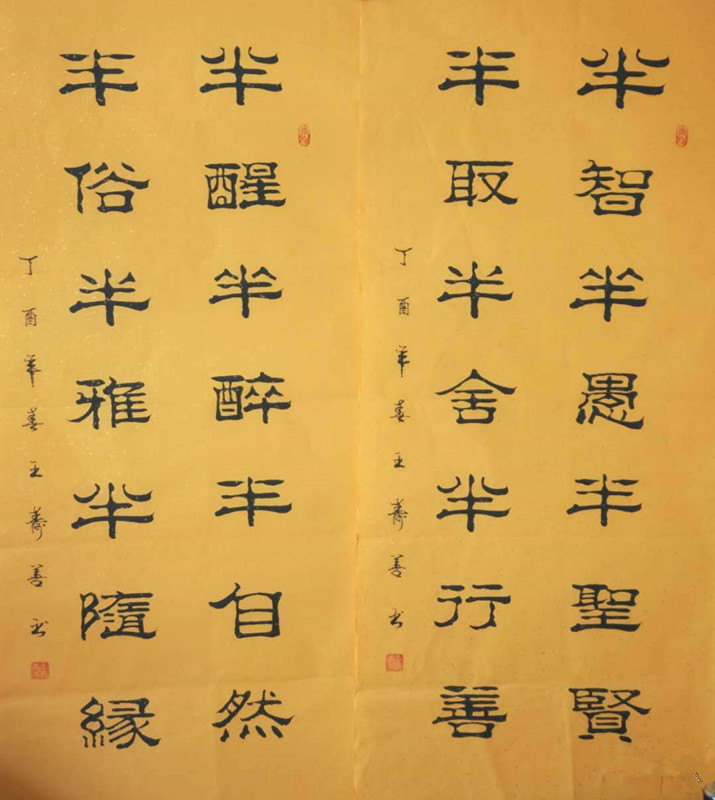 半智半愚半聖賢
半取半舍半行善
丁酉年春王壽善书
半醒半醉半自然
半俗半雅半隨緣
丁酉年春王壽善书